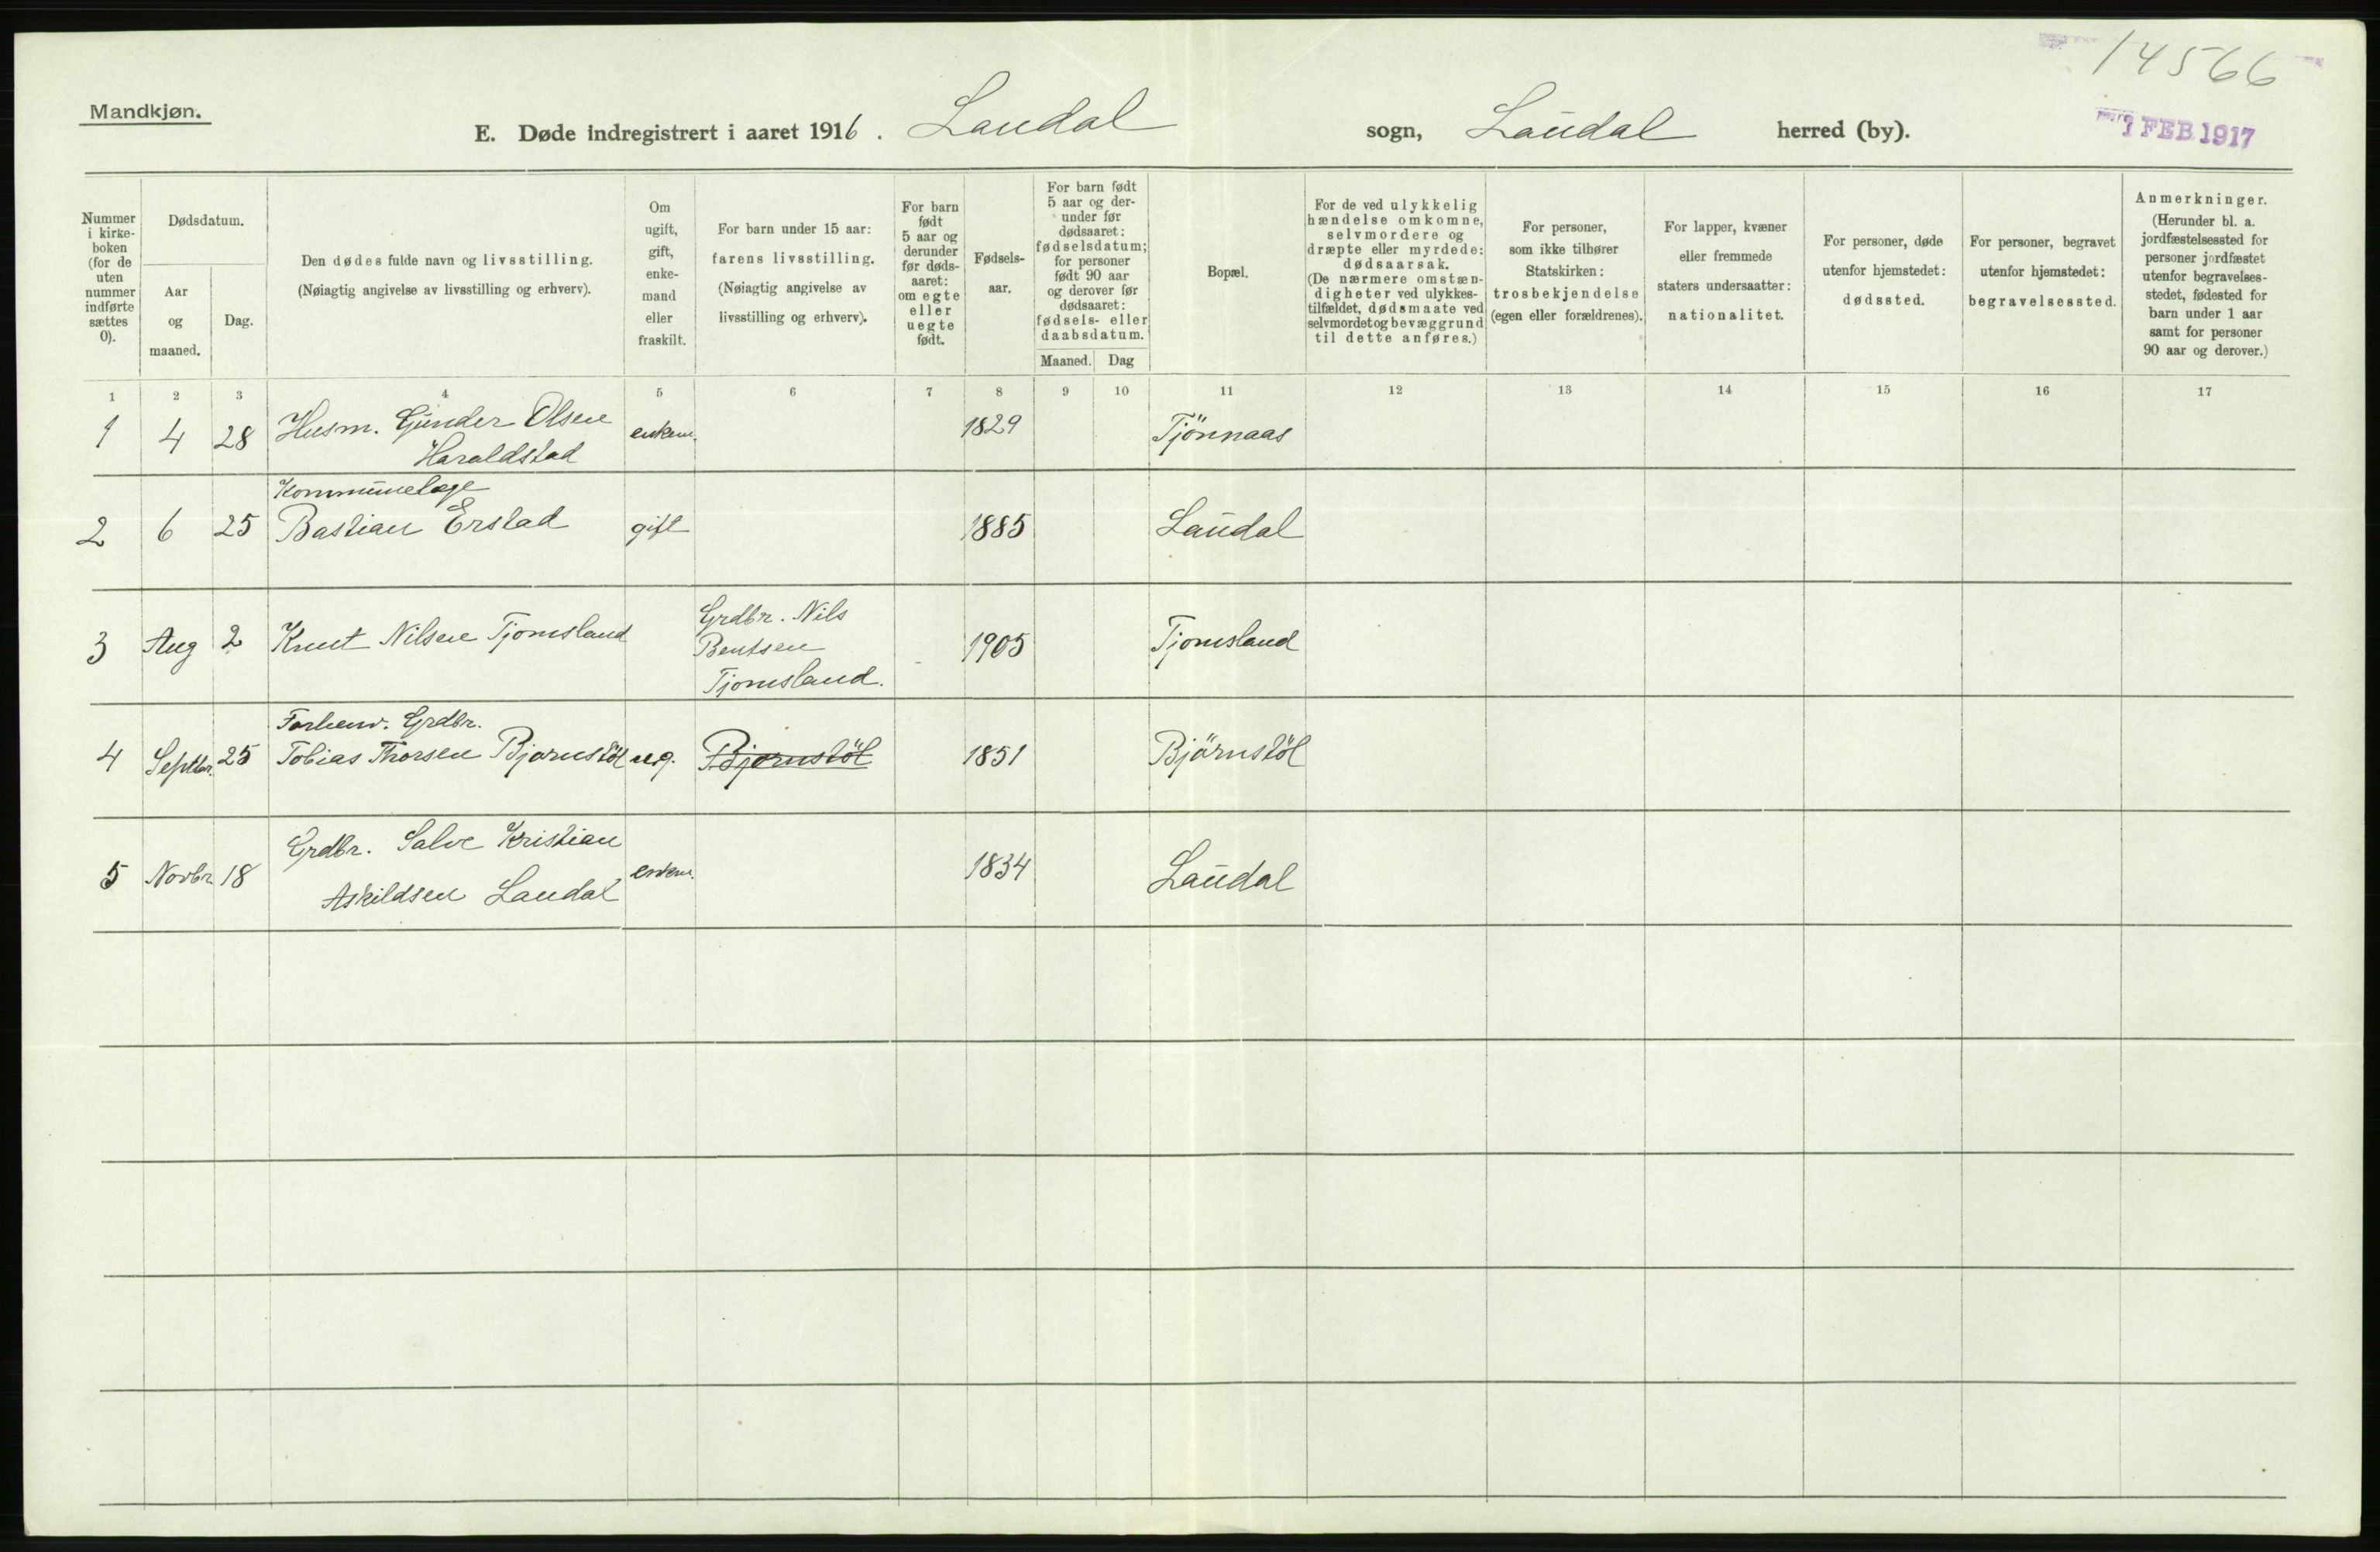 14566
Mandkjøn.
E. Døde indregistrert i aaret 1916. Laudal sogn, Laudal herred (by).
FEB 1917
Nummer i kirke-
boken
(for de
uten
nummer
indførte
sættes
0).
Dødsdatum.
Aar
og
maaned.
Dag.
Den dødes fulde navn og livsstilling.
(Nøiagtig angivelse av livsstilling og erhverv).
Om
ugift,
gift,
enke-
mand
eller
fraskilt.
For barn under 15 aar:
farens livsstilling.
(Nøiagtig angivelse av
livsstilling og erhverv).
For barn
født
5 aar og
derunder
før døds-
aaret:
om egte
eller
uegte
født.
Fødsels-
aar.
For barn født
5 aar og der-
under før
dødsaaret:
fødselsdatum;
for personer
født 90 aar
og derover før
dødsaaret:
fødsels- eller
daabsdatum.
Maaned. Dag
Bopæl.
For de ved ulykkelig
hændelse omkomne,
selvmordere og
dræpte eller myrdede:
dødsaarsak.
(De nærmere omstæn-
digheter ved ulykkes-
tilfældet, dødsmaate ved
selvmordet og bevæggrund
til dette anføres.)
For personer,
som ikke tilhører
Statskirken:
trosbekjendelse
(egen eller forældrenes).
For lapper, kvæner
eller fremmede
staters undersaatter:
nationalitet.
For personer, døde
utenfor hjemstedet:
dødssted.
For personer, begravet
utenfor hjemstedet:
begravelsessted.
Anmerkninger.
(Herunder bl. a.
jordfæstelsessted for
personer jordfæstet
utenfor begravelses-
stedet, fødested for
barn under 1 aar
samt for personer
90 aar og derover.)
1 2 3 4 5 6 7 8 9 10 11 12 13 14 15 16 17
1 4 28 Husm. Gunder Olsen enkem. 1829 Tjönnaas
Haraldstad
Kommunelæge
2 6 25 Bastian Erstad gift 1885 Laudal
Grdbr. Nils
3 Aug 2 Knut Nilsen Tjomsland Bentsen 1905 Tjomsland
Tjomsland.
Forhenv. Grdbr.
4 Septbr. 25 Tobias Thorsen Bjørnstöl ug. Bjørnstöl 1851 Björnstöl
Grdbr. Salve Kristian
5 Novbr. 18 enkem. 1834 Laudal
Askildsen Laudal